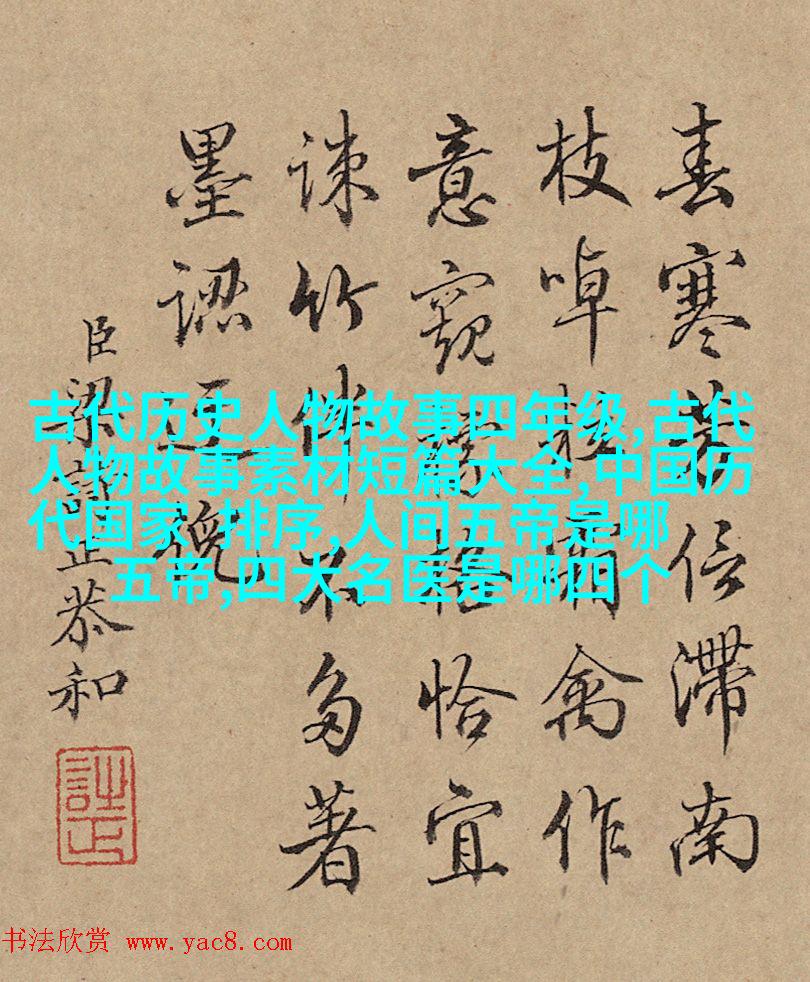 春寒信滯南
枝啅禽作
意窺恰宜
疎竹伴不多著
墨
臣梁詩正恭和
詩正
古代历史人物故事四年级,古代
人物故事素材短篇大全,中国历
代国家 排序,人间五帝是哪
五帝,四大名医是哪四个
书法欣赏 www.yac8.com